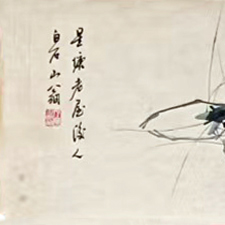 星塘老屋後人
白石山翁